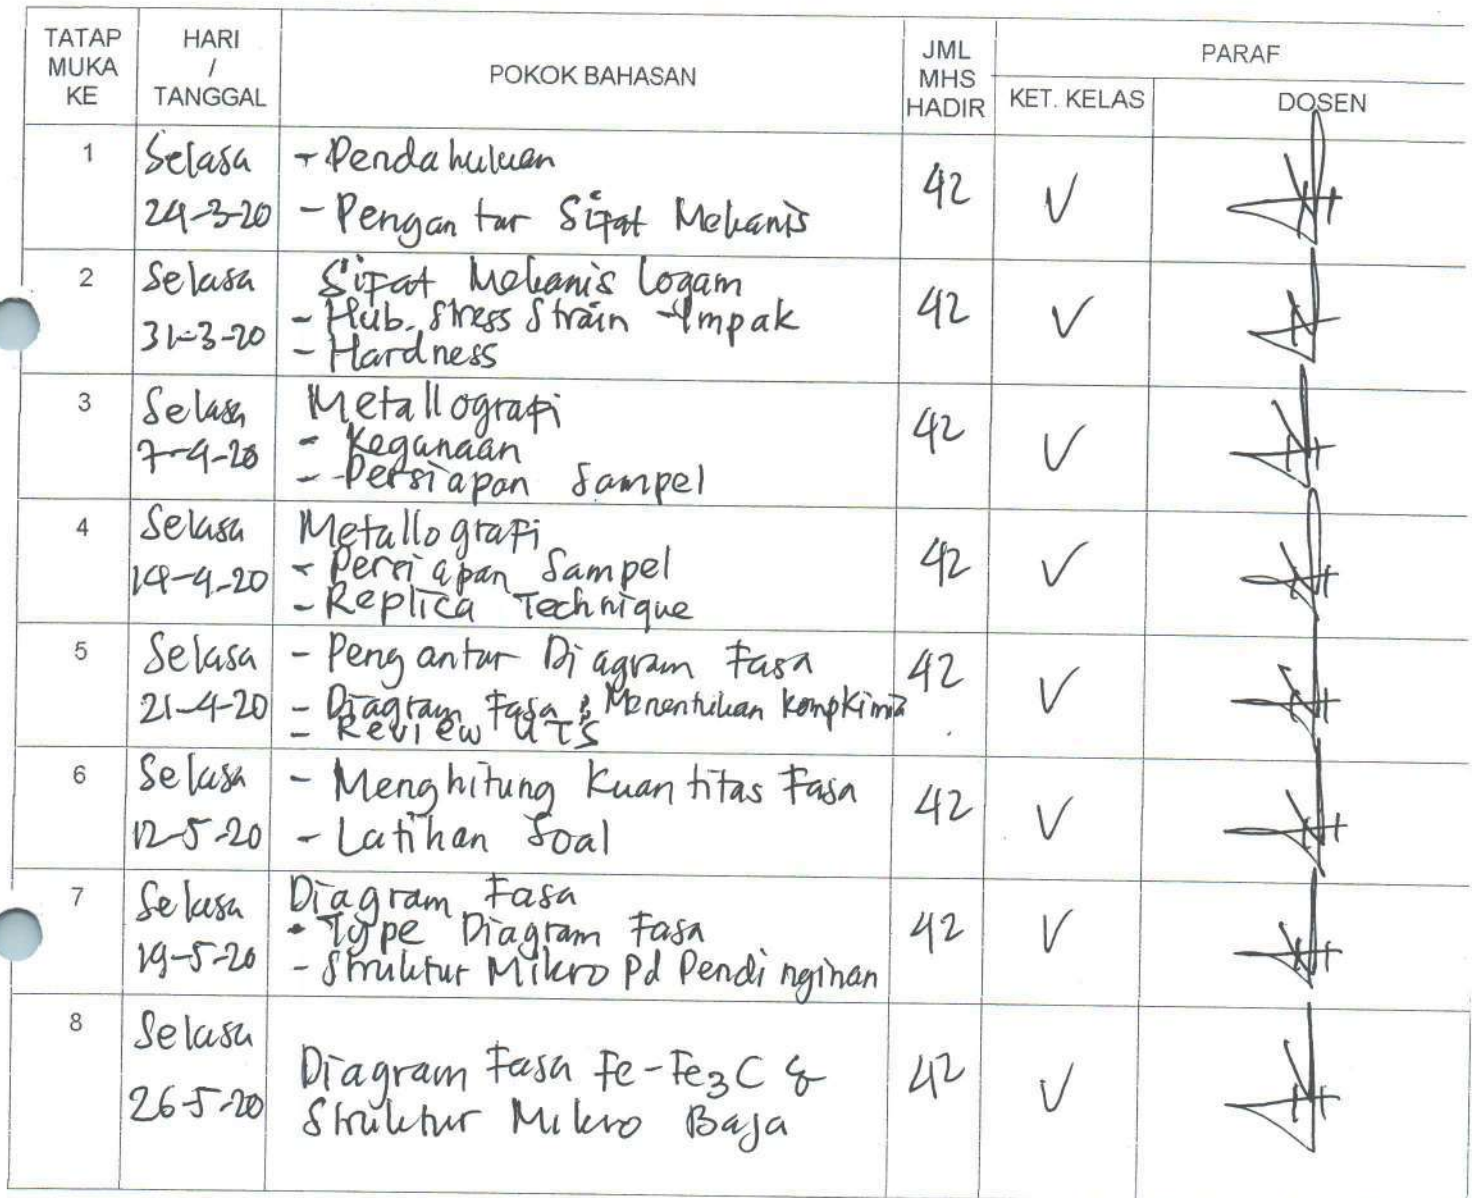 TATAP MUKA KE
HARI / TANGGAL
POKOK BAHASAN
JML MHS HADIR
PARAF
KET. KELAS
DOSEN
1
Selasa
24-3-20
- Pendahuluan
- Pengantar Sifat Mekanis
42
V
2
Selasa
31-3-20
Sifat Mekanis Logam
- Hub. Stress Strain - Impak
- Hardness
42
V
3
Selasa
7-4-20
Metallografi
- Kegunaan
- Persiapan Sampel
42
V
4
Selasa
14-4-20
Metallografi
- Persiapan Sampel
- Replica Technique
42
V
5
Selasa
21-4-20
- Pengantar Diagram Fasa
- Diagram Fasa & Menentukan kompkimia
- Review UTS
42
V
6
Selasa
12-5-20
- Menghitung Kuantitas Fasa
- Latihan Soal
42
V
7
Selasa
19-5-20
Diagram Fasa
- Type Diagram Fasa
- Struktur Mikro Pd Pendinginan
42
V
8
Selasa
26-5-20
Diagram Fasa Fe-Fe3C &
Struktur Mikro Baja
42
V